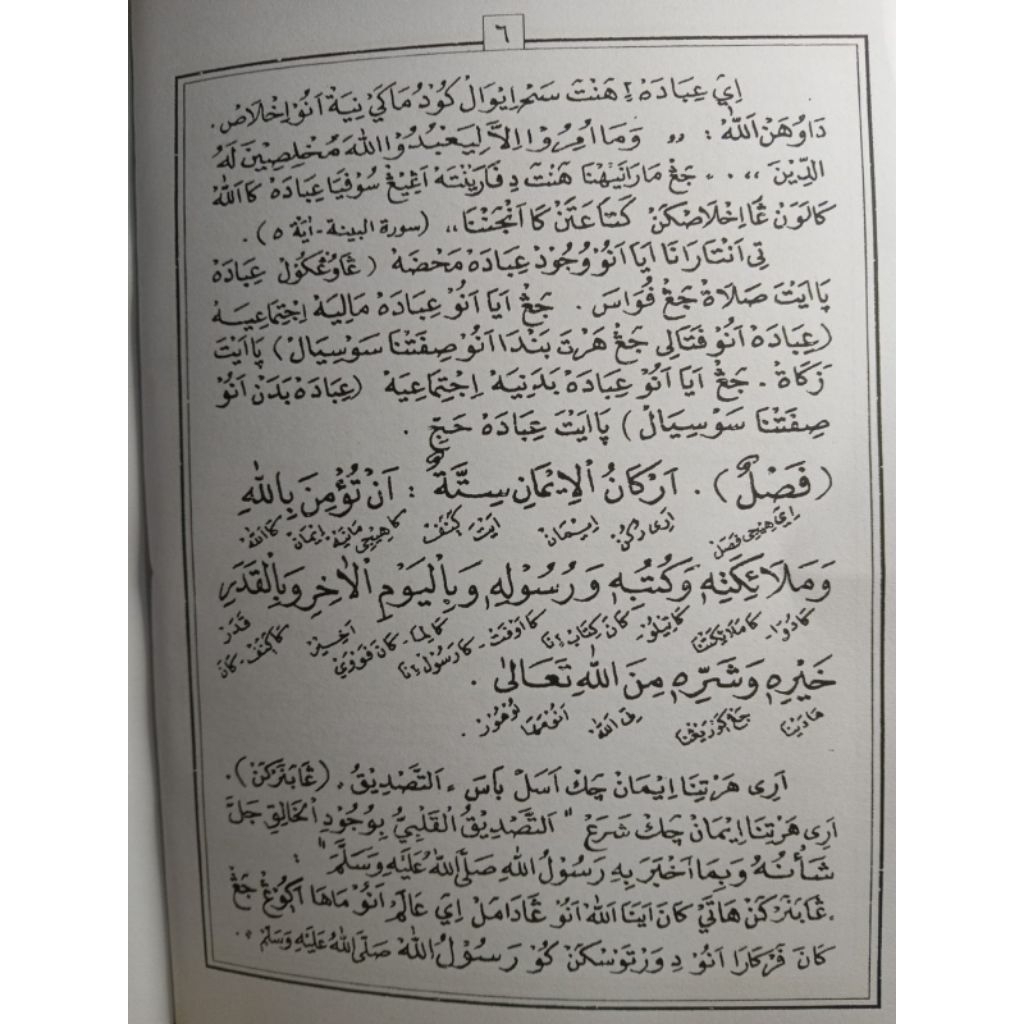 ٦
اِيْ عِبَادَهْ؟ هَنْتَ سَحْ اِيْوَالْ كُوْدُ مَاكَيْ نِيَةْ اَنُوْ اِخْلَاصْ.
دَاوُهَنْ اَللهْ : ,, وَمَا اُمِرُوْا اِلَّا لِيَعْبُدُوْا اللهَ مُخْلِصِيْنَ لَهُ
الدِّيْنَ ,, . . جَڠْ مَارَانَيْهْنَا هَنْتَ دِ ڤَارِيْنْتَهْ اَڠِيْڠْ سُوْڤَيَا عِبَادَهْ كَا اَللهْ
كَالَوَنْ ڠَا اِخْلَاصْكَنْ كَتَاعَتَنْ كَا اَنْجَنْنَا ,, (سورة البينة - اية ٥) .
تِيْ اَنْتَارَانَا اَيَا اَنُوْ وُجُوْدْ عِبَادَهْ مَحْضَهْ (ڠَاوُڠْكُوْلْ عِبَادَهْ
ڽَاايْتَ صَلَاةْ جَڠْ ڤُوَاسَ . جَڠْ اَيَا اَنُوْ عِبَادَهْ مَالِيَهْ اِجْتِمَاعِيَهْ
(عِبَادَهْ اَنُوْ ڤَتَالِى جَڠْ هَرْتَ بَنْدَا اَنُوْ صِفَتْنَا سَوْسِيَالْ) ڽَاايْتَ
زَكَاةْ . جَڠْ اَيَا اَنُوْ عِبَادَهْ بَدَنِيَهْ اِجْتِمَاعِيَهْ (عِبَادَهْ بَدَنْ اَنُوْ
صِفَتْنَا سَوْسِيَالْ) ڽَاايْتَ عِبَادَهْ حَجّ .
(فَصْلٌ) . اَرْكَانُ الْاِيْمَانِ سِتَّةٌ : اَنْ تُؤْمِنَ بِاللهِ
اِيَ هِيْجِى فَصَلْ اَرِى رُكُنْ اِيْمَانْ اَيْتَ كَنَفْ كَاهِيْجِى مَانَيَهْ اِيْمَانْ كَا اَللهْ
وَمَلَائِكَتِهِ وَكُتُبِهِ وَرُسُوْلِهِ وَبِالْيَوْمِ الْاٰخِرِ وَبِالْقَدَرِ
كَادُوَا - كَا مَلَائِكَتْنَا كَاتِيْلُوْ - كَانَ كِتَابْ اِنَا كَا اَوْڤَتْ - كَا رَسُوْلْ اِنَا كَالِيْمَا - كَانَ ڤَوَوَيْ اَخِيْرْ كَا كَنَفْ - كَانَ قَدَرْ
خَيْرِهِ وَشَرِّهِ مِنَ اللهِ تَعَالٰى .
هَادَيْنَا جَڠْ كَوْرَيْڠْنَا تِى اَللهْ اَنُوْ مَهَا لُوْهُوْرْ .
اَرِى هَرْتِنَا اِيْمَانْ چَكْ اَسَلْ بَاسَ ، اَلتَّصْدِيْقُ . (ڠَابَنَرْكَنْ) .
اَرِى هَرْتِنَا اِيْمَانْ چَكْ شَرَعْ " اَلتَّصْدِيْقُ الْقَلْبِيُّ بِوُجُوْدِ الْخَالِقِ جَلَّ
شَأْنُهُ وَبِمَا اَخْبَرَ بِهِ رَسُوْلُ اللهِ صَلَّى اللهُ عَلَيْهِ وَسَلَّمَ " :
ڠَابَنَرْكَنْ هَاتَيْ كَانَ اَيَنَا اَللهْ اَنُوْ ڠَادَامَلْ اِيَ عَالَمْ اَنُوْ مَاهَا اَكُوْڠْ جَڠْ
كَانَ ڤَرْكَارَا اَنُوْ دِ وَرْتَوْسْكَنْ كُوْ رَسُوْلُ اللهْ صَلَّى اللهُ عَلَيْهِ وَسَلَّمْ .